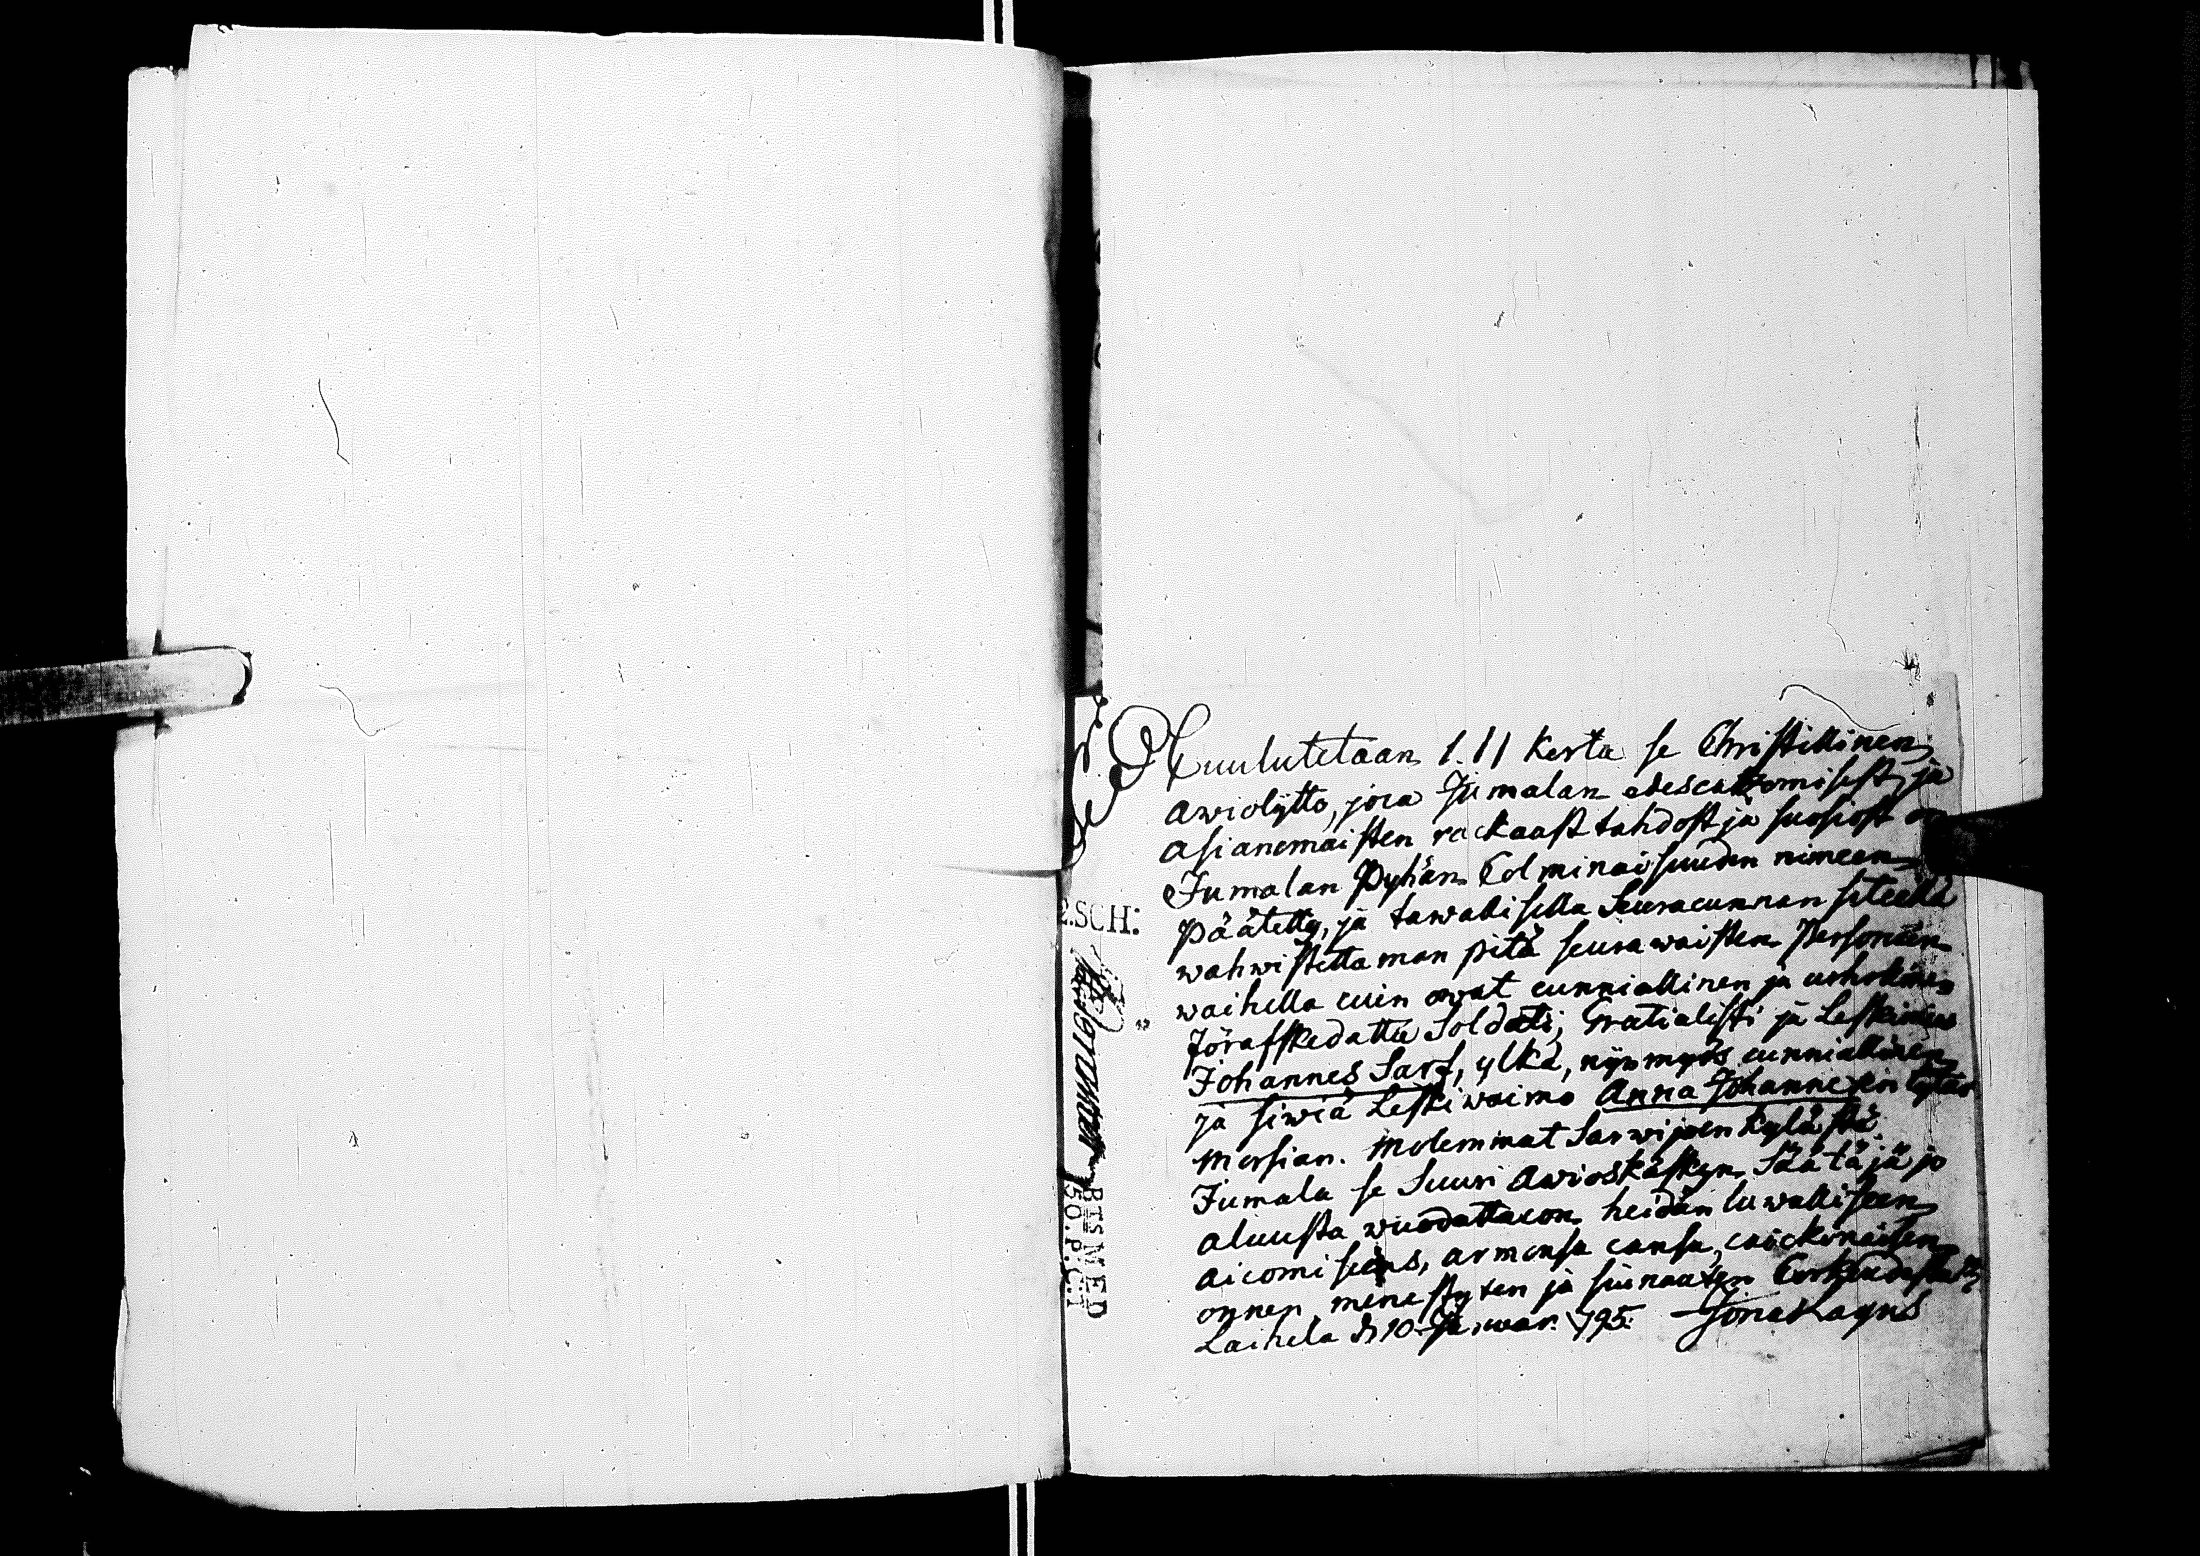 Cuulutetaan 1. 11 kerta se Christillinen
awiolijtto, joca Jumalan edescatzomisest, ja
asianomaisten rackaast tahdost ja suosiost on
Jumalan Pyhän Colminaisuuden nimeen
päätetty, ja tawallisella Seuracunnan siteellä
wahwistettaman pitä seurawaisten Personien
waihella cuin owat cunniallinen ja urhollinen
förafskedattu Soldati, Gratialisti ja Leskimies
Johannes Sarf, ylkä, nijn myös cunniallinen
ja siwiä Leskiwaimo Anna Johannexen tytär
morsian. Molemmat Sarwijoen kylästä
Jumala se Suuri Awioskäskyn Säätäjä jo
aluusta wuodattacon heidän luwalliseen
aicomiseens, armonsa cansa, caickinaisen
onnen, menestyxen ja siunauxen Corkeudesta
Laihela d. 10. Januar. 1795. Jonas Lagus
2.SCH:
BTSMED
50.P.C:T